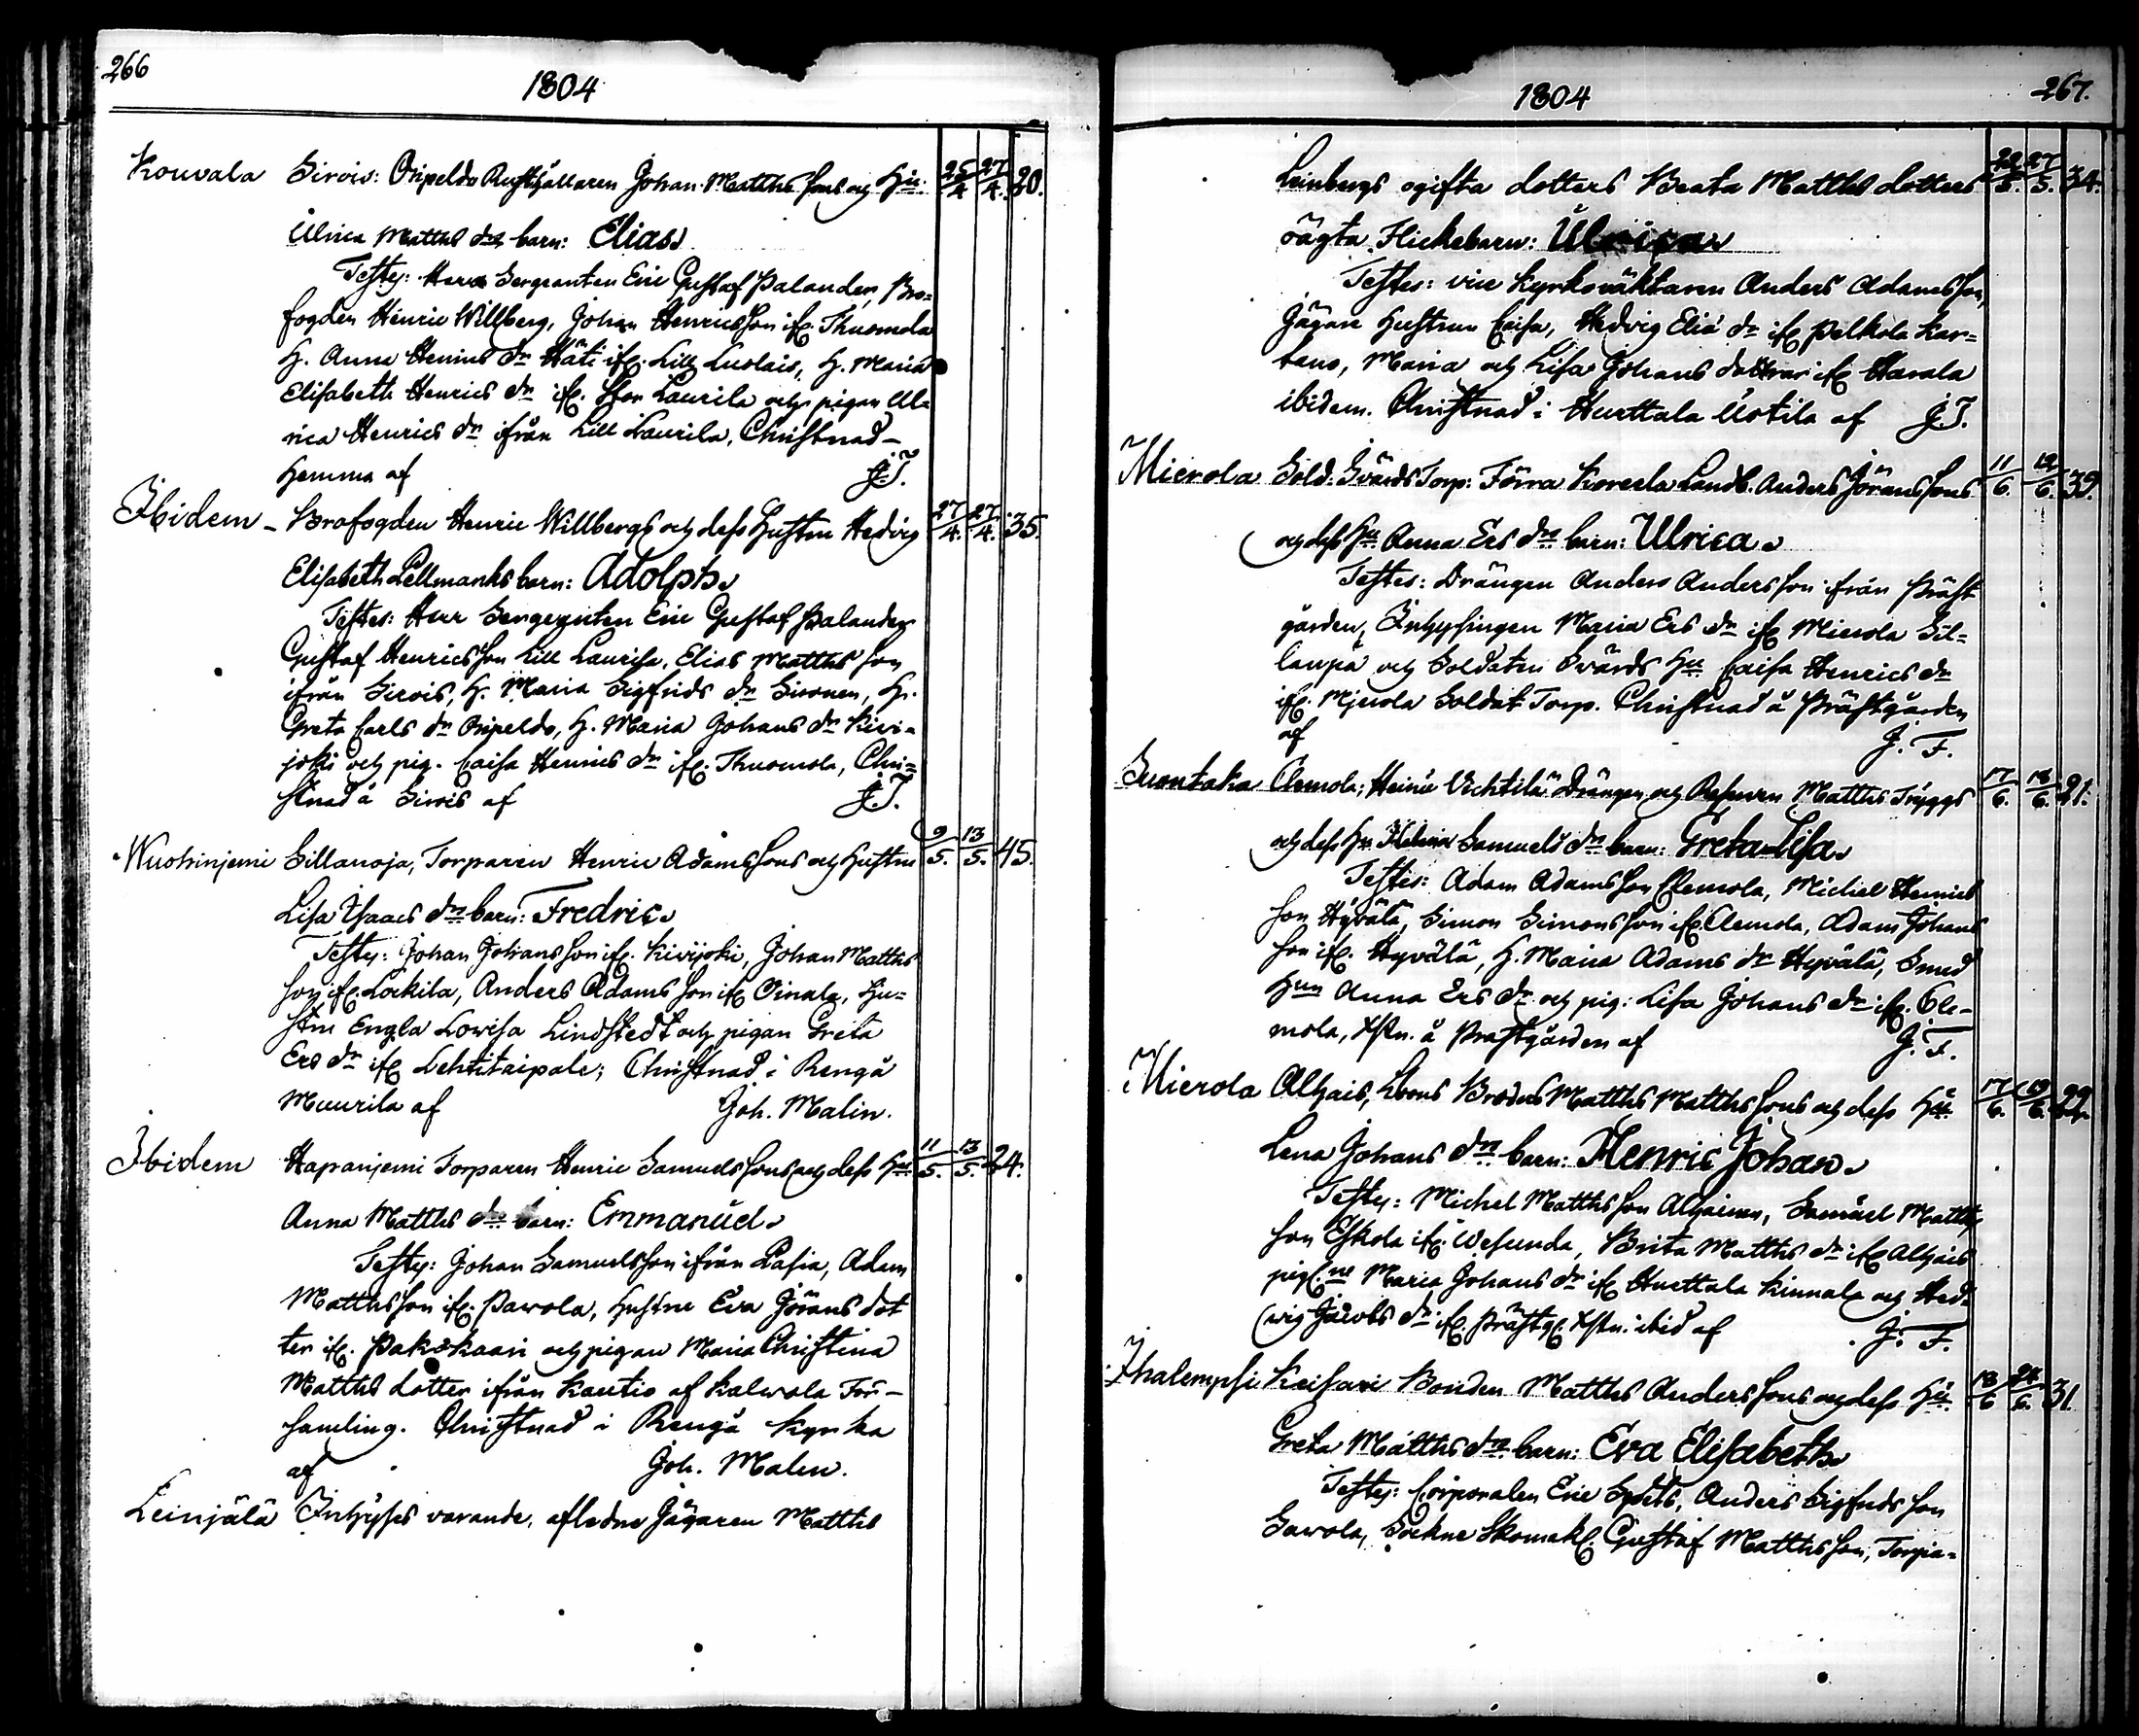 266
1804
Kouvala Sirois: Oripeldo Rusthållaren Johan Matths Sons och Hu: 25/4 27/4. 20.
Ulrica Matths dr barn: Elias.
Testes: Herr Sergeanten Eric Gustaf Palander, Bro=
fogden Henric Willberg, Johan Henricsson ifr. Thuomola
H. Anna Henrics dr Häti ifr. Lill Luolais, H. Maria
Elisabeth Henrics dr ifr. Stor Laurila och pigan Ul=
rica Henrics dr ifrån Lill Laurila, Christnad
hemma af J.T.
Ibidem Brofogden Henric Willbergs och dess Hustru Hedvig 27/4. 27/4. 35.
Elisabeth Lellmanks barn: Adolph.
Testes: Herr Sergeanten Eric Gustaf Palander
Gustaf Henricsson Lill Laurila, Elias Matths son
ifrån Sirois, H. Maria Sigfrids dr Sironen, H.
Greta Carls dr Oripeldo, H. Maria Johans dr Kivi=
joki och pig. Caisa Henrics dr ifr. Thuomola, Chri=
stnad å Sirois af J.T.
Wuohinjemi Sillanoja, Torparen Henric Adams Sons och Hustru 9/5. 13/5. 45.
Lisa Isaacs dr barn: Fredric.
Testes: Johan Johansson ifr. Kivijoki, Johan Matths
son ifr. Lockila, Anders Adams son ifr Oinala, Hu=
stru Engla Lovisa Lindstedt och pigan Greta
Ers dr ifr Lehtitaipale; Christnad i Rengå
Muurila af Joh. Malin.
Ibidem Hapanjemi Torparen Henric Samuels Sons och dess Hu: 11/5. 13/5. 24.
Anna Matths dr barn: Emmanuel.
Testes: Johan Samuelsson ifrån Lasia, Adam
Matthsson ifr. Pawola, Hustru Eva Jörans dot
ter ifr. Pakokaari och pigan Maria Christina
Matths dotter ifrån Kautio af Kalwola För=
samling. Christnad i Rengå Kyrka
af Joh. Malin.
Leinjälä Inhyses varande, afledne Jägaren Matths
1804
267.
Leinbergs ogifta dotters Beata Matths dotters 22/5. 27/5. 34.
oägta Flickebarn: Ulrica
Testes: vice Kyrkoväktaren Anders Adamsson,
Jägare Hustrun Caisa, Hedvig Eliæ dr ifr Pelkola Kar=
tano, Maria och Lisa Johans döttrar ifr Havala
ibidem. Christnad i Hurttala Ustila af J.T.
Mierola Sold. Svärds Torp: Förra Koreela Landb. Anders Jörans Sons 11/6. 12/6. 39.
och dess Hu Anna Ers dr barn: Ulrica.
Testes: Drängen Anders Andersson ifrån Präst
gården, Inhysingen Maria Ers dr ifr Mierola Sil=
lanpä och Soldaten Svärds Hu Caisa Henrics dr
ifr. Mierola Soldat Torp. Christnad å Prästgården
af J. F.
Suontaka Clemola; Heinu Uchtilä Drängen och Reserven Matths Tryggs 17/6. 18/6. 21.
och dess Hu Helena Samuels dr barn: Greta Lisa.
Testis: Adam Adamsson Clemola, Michel Henrics
son Hyvälä, Simon Simonsson ifr Clemola, Adam Johans
son ifr. Hyvälä, H. Maria Adams dr Hyvälä, Smed
Hun Anna Ers dr och pig: Lisa Johans dr ifr. Cle=
mola, Xstn. å Prästgården af J. F.
Mierola Alhais, Lbons Brodrs Matths Matths Sons och dess Hu 17/6. 19/6. 22.
Lena Johans dr barn: Henric Johan.
Testes: Michel Matths son Alhainen, Samuel Matths
son Eskola ifr. Wesunda, Brita Matths dr ifr Alhais
pigr.ne Maria Johans dr ifr Hurttala Kinnala och Hed=
vig Jacobs dr ifr. Prästg. Xstn. ibid af J. F.
Ihalempsi Keisari Bonden Matths Anders Sons och dess Hu 18/6 24/6. 31.
Greta Matths dr barn: Eva Elisabeth.
Testes: Corporalen Eric Spets, Anders Sigfrids son
Sawola, Sockne Skomak. Gustaf Matths son, Torpa=